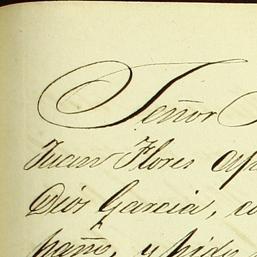 Señor
Juan Flores
Dios Garcia,
y pide